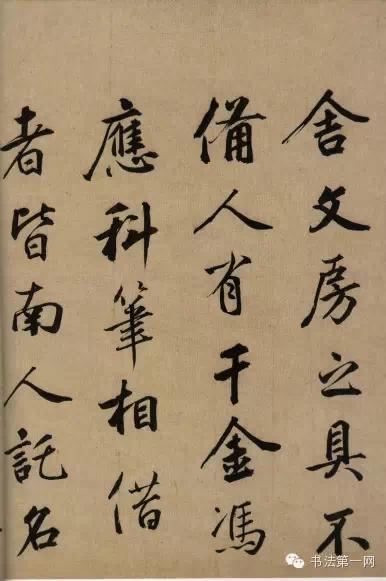 舍文房之具不
備人有千金馮
應科筆相借
者皆南人託名
书法第一网